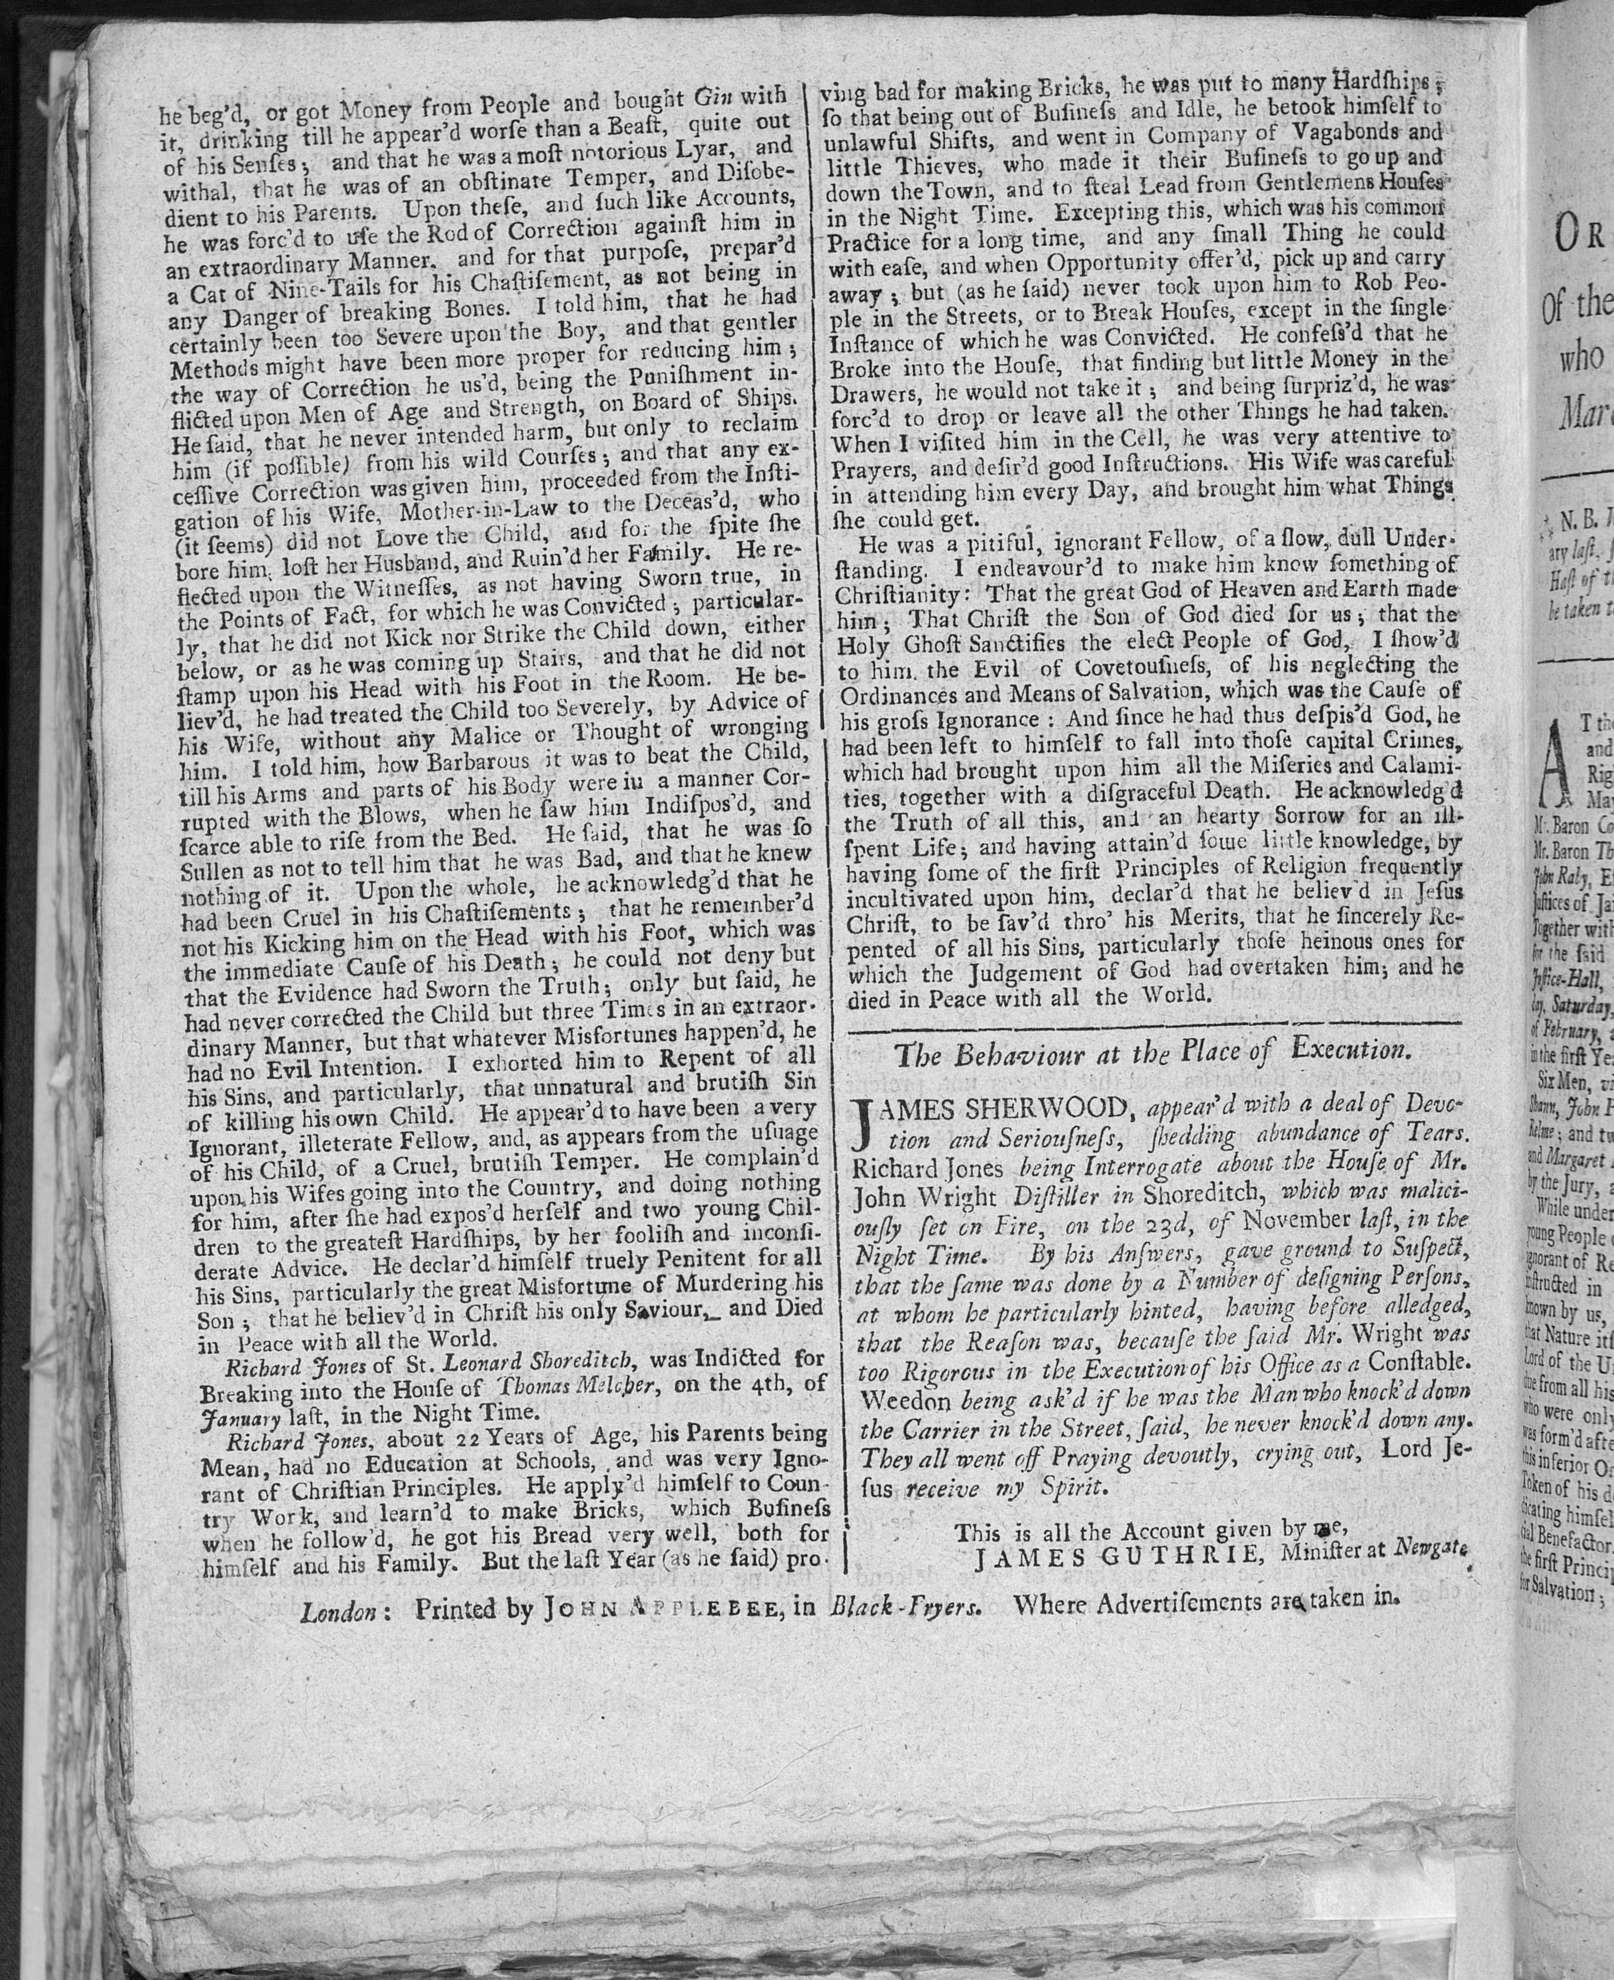 he beg'd, or got Money from People and bought Gin with
it, drinking till he appear'd worſe than a Beaſt, quite out
of his Senſes; and that he was a moſt notorious Lyar, and
withal, that he was of an obſtinate Temper, and Diſobe-
dient to his Parents. Upon theſe, and ſuch like Accounts,
he was forc'd to uſe the Rod of Correction againſt him in
an extraordinary Manner. and for that purpoſe, prepar'd
a Cat of Nine-Tails for his Chaſtiſement, as not being in
any Danger of breaking Bones. I told him, that he had
certainly been too Severe upon the Boy, and that gentler
Methods might have been more proper for reducing him;
the way of Correction he us'd, being the Puniſhment in-
flicted upon Men of Age and Strength, on Board of Ships.
He ſaid, that he never intended harm, but only to reclaim
him (if poſſible) from his wild Courſes; and that any ex-
ceſſive Correction was given him, proceeded from the Inſti-
gation of his Wife, Mother-in-Law to the Deceas'd, who
(it ſeems) did not Love the Child, and for the ſpite ſhe
bore him, loſt her Husband, and Ruin'd her Family. He re-
flected upon the Witneſſes, as not having Sworn true, in
the Points of Fact, for which he was Convicted; particular-
ly, that he did not Kick nor Strike the Child down, either
below, or as he was coming up Stairs, and that he did not
ſtamp upon his Head with his Foot in the Room. He be-
liev'd, he had treated the Child too Severely, by Advice of
his Wife, without any Malice or Thought of wronging
him. I told him, how Barbarous it was to beat the Child,
till his Arms and parts of his Body were iu a manner Cor-
rupted with the Blows, when he ſaw him Indiſpos'd, and
ſcarce able to riſe from the Bed. He ſaid, that he was ſo
Sullen as not to tell him that he was Bad, and that he knew
nothing of it. Upon the whole, he acknowledg'd that he
had been Cruel in his Chaſtiſements; that he remember'd
not his Kicking him on the Head with his Foot, which was
the immediate Cauſe of his Death; he could not deny but
that the Evidence had Sworn the Truth; only but ſaid, he
had never corrected the Child but three Times in an extraor-
dinary Manner, but that whatever Misfortunes happen'd, he
had no Evil Intention. I exhorted him to Repent of all
his Sins, and particularly, that unnatural and brutiſh Sin
of killing his own Child. He appear'd to have been a very
Ignorant, illeterate Fellow, and, as appears from the uſuage
of his Child, of a Cruel, brutiſh Temper. He complain'd
upon his Wifes going into the Country, and doing nothing
for him, after ſhe had expos'd herſelf and two young Chil-
dren to the greateſt Hardſhips, by her fooliſh and inconſi-
derate Advice. He declar'd himſelf truely Penitent for all
his Sins, particularly the great Misfortune of Murdering his
Son; that he believ'd in Chriſt his only Saviour, and Died
in Peace with all the World.
Richard Jones of St. Leonard Shoreditch, was Indicted for
Breaking into the Houſe of Thomas Melcher, on the 4th, of
January laſt, in the Night Time.
Richard Jones, about 22 Years of Age, his Parents being
Mean, had no Education at Schools, and was very Igno-
rant of Chriſtian Principles. He apply'd himſelf to Coun-
try Work, and learn'd to make Bricks, which Buſineſs
when he follow'd, he got his Bread very well, both for
himſelf and his Family. But the laſt Year (as he ſaid) pro-
ving bad for making Bricks, he was put to many Hardſhips;
ſo that being out of Buſineſs and Idle, he betook himſelf to
unlawful Shifts, and went in Company of Vagabonds and
little Thieves, who made it their Buſineſs to go up and
down the Town, and to ſteal Lead from Gentlemens Houſes
in the Night Time. Excepting this, which was his common
Practice for a long time, and any ſmall Thing he could
with eaſe, and when Opportunity offer'd, pick up and carry
away; but (as he ſaid) never took upon him to Rob Peo-
ple in the Streets, or to Break Houſes, except in the ſingle
Inſtance of which he was Convicted. He confeſs'd that he
Broke into the Houſe, that finding but little Money in the
Drawers, he would not take it; and being ſurpriz'd, he was
forc'd to drop or leave all the other Things he had taken.
When I viſited him in the Cell, he was very attentive to
Prayers, and deſir'd good Inſtructions. His Wife was careful
in attending him every Day, and brought him what Things
ſhe could get.
He was a pitiful, ignorant Fellow, of a ſlow, dull Under-
ſtanding. I endeavour'd to make him know ſomething of
Chriſtianity: That the great God of Heaven and Earth made
him; That Chriſt the Son of God died for us; that the
Holy Ghoſt Sanctifies the elect People of God, I ſhow'd
to him the Evil of Covetouſneſs, of his neglecting the
Ordinances and Means of Salvation, which was the Cauſe of
his groſs Ignorance: And ſince he had thus deſpis'd God, he
had been left to himſelf to fall into thoſe capital Crimes,
which had brought upon him all the Miſeries and Calami-
ties, together with a diſgraceful Death. He acknowledg'd
the Truth of all this, and an hearty Sorrow for an ill-
ſpent Life; and having attain'd ſome little knowledge, by
having ſome of the firſt Principles of Religion frequently
incultivated upon him, declar'd that he believ'd in Jeſus
Chriſt, to be ſav'd thro' his Merits, that he ſincerely Re-
pented of all his Sins, particularly thoſe heinous ones for
which the Judgement of God had overtaken him; and he
died in Peace with all the World.
The Behaviour at the Place of Execution.
JAMES SHERWOOD, appear'd with a deal of Devo-
tion and Seriouſneſs, ſhedding abundance of Tears.
Richard Jones being Interrogate about the Houſe of Mr.
John Wright Diſtiller in Shoreditch, which was malici-
ouſly ſet on Fire, on the 23d, of November laſt, in the
Night Time. By his Anſwers, gave ground to Suſpect,
that the ſame was done by a Number of deſigning Perſons,
at whom he particularly hinted, having before alledged,
that the Reaſon was, becauſe the ſaid Mr. Wright was
too Rigorous in the Execution of his Office as a Conſtable.
Weedon being ask'd if he was the Man who knock'd down
the Carrier in the Street, ſaid, he never knock'd down any.
They all went off Praying devoutly, crying out, Lord Je-
ſus receive my Spirit.
This is all the Account given by me,
JAMES GUTHRIE, Miniſter at Newgate.
London: Printed by JOHN APPLEBEE, in Black-Fryers. Where Advertiſements are taken in.
OR
Of the
who
N. B.
ary laſt,
Haſt of
be taken
AT the
and
Rig
May
Mr. Baron
Mr. Baron
John Raby,
Juſtices of
Together with
for the ſaid
Juſtice-Hall,
day, Saturday,
of February,
in the firſt
Six Men,
Shann, John
and
and Margaret
by the Jury,
While under
young People
ignorant of
inſtructed in
known by us,
that Nature
Lord of the
due from all his
who were only
was form'd
this inferior
Token of his
dicating himſelf
cial Benefactor,
the firſt
for Salvation;